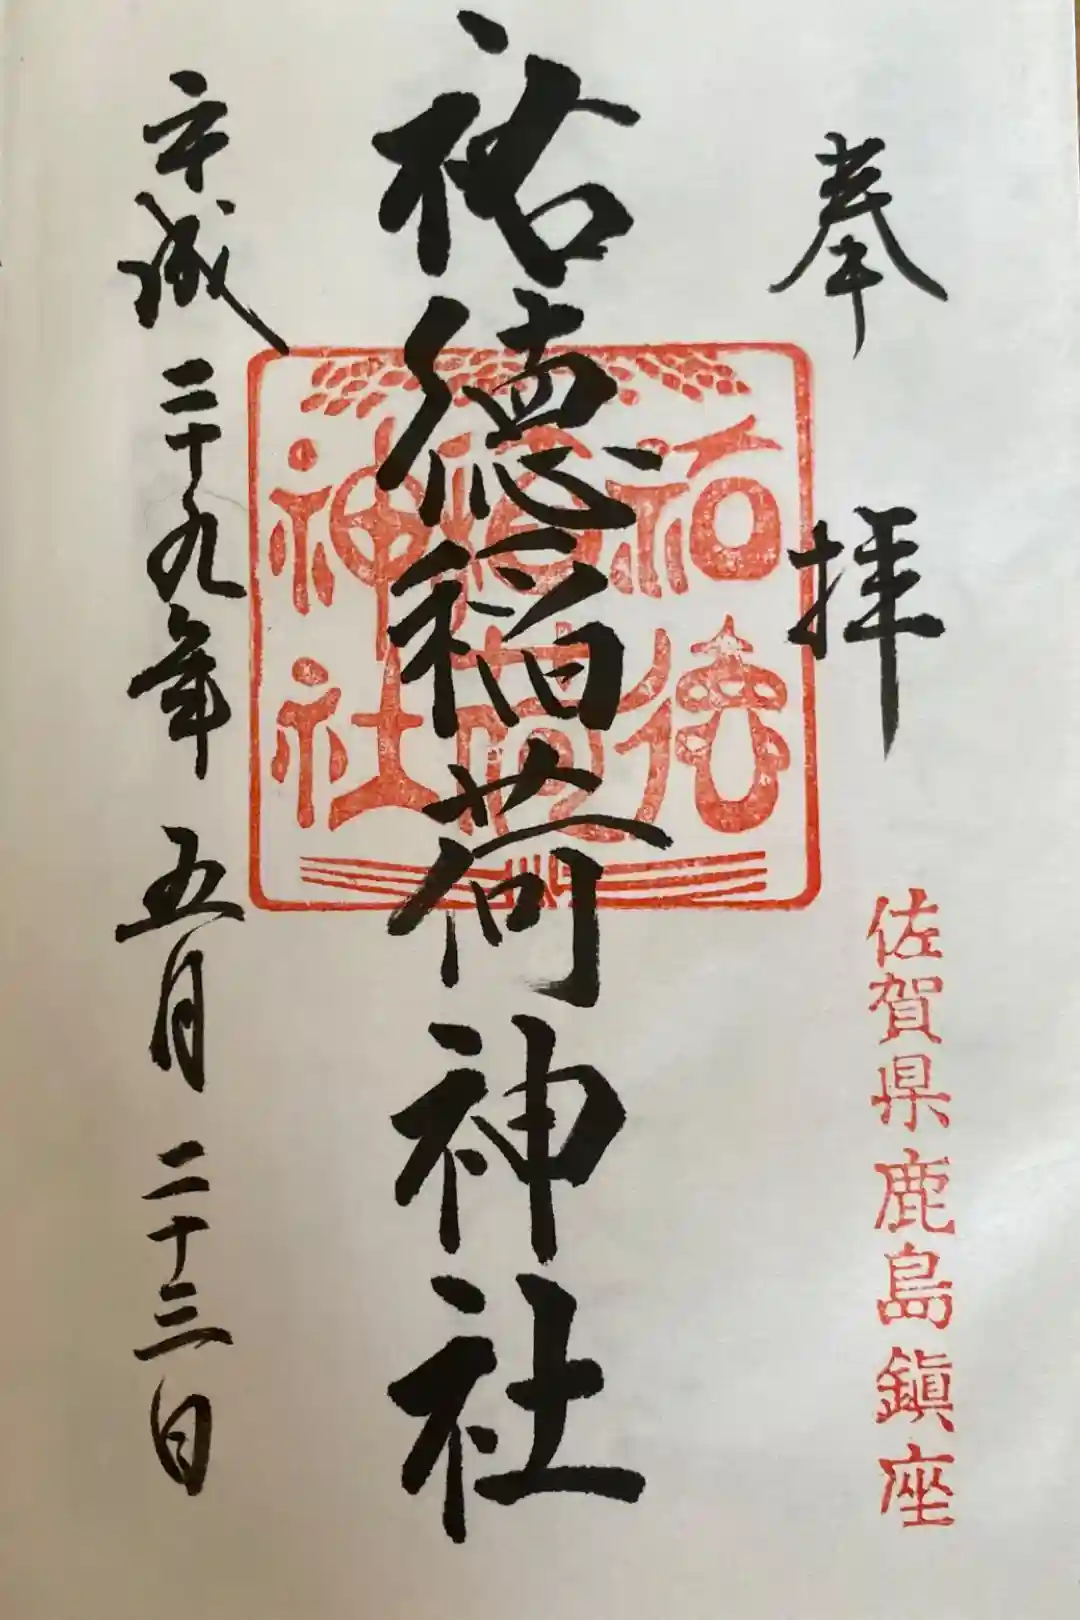 奉拝
佐賀県鹿島鎮座
祐徳稲荷神社
祐徳
稲荷
神社
平成二十九年五月二十三日